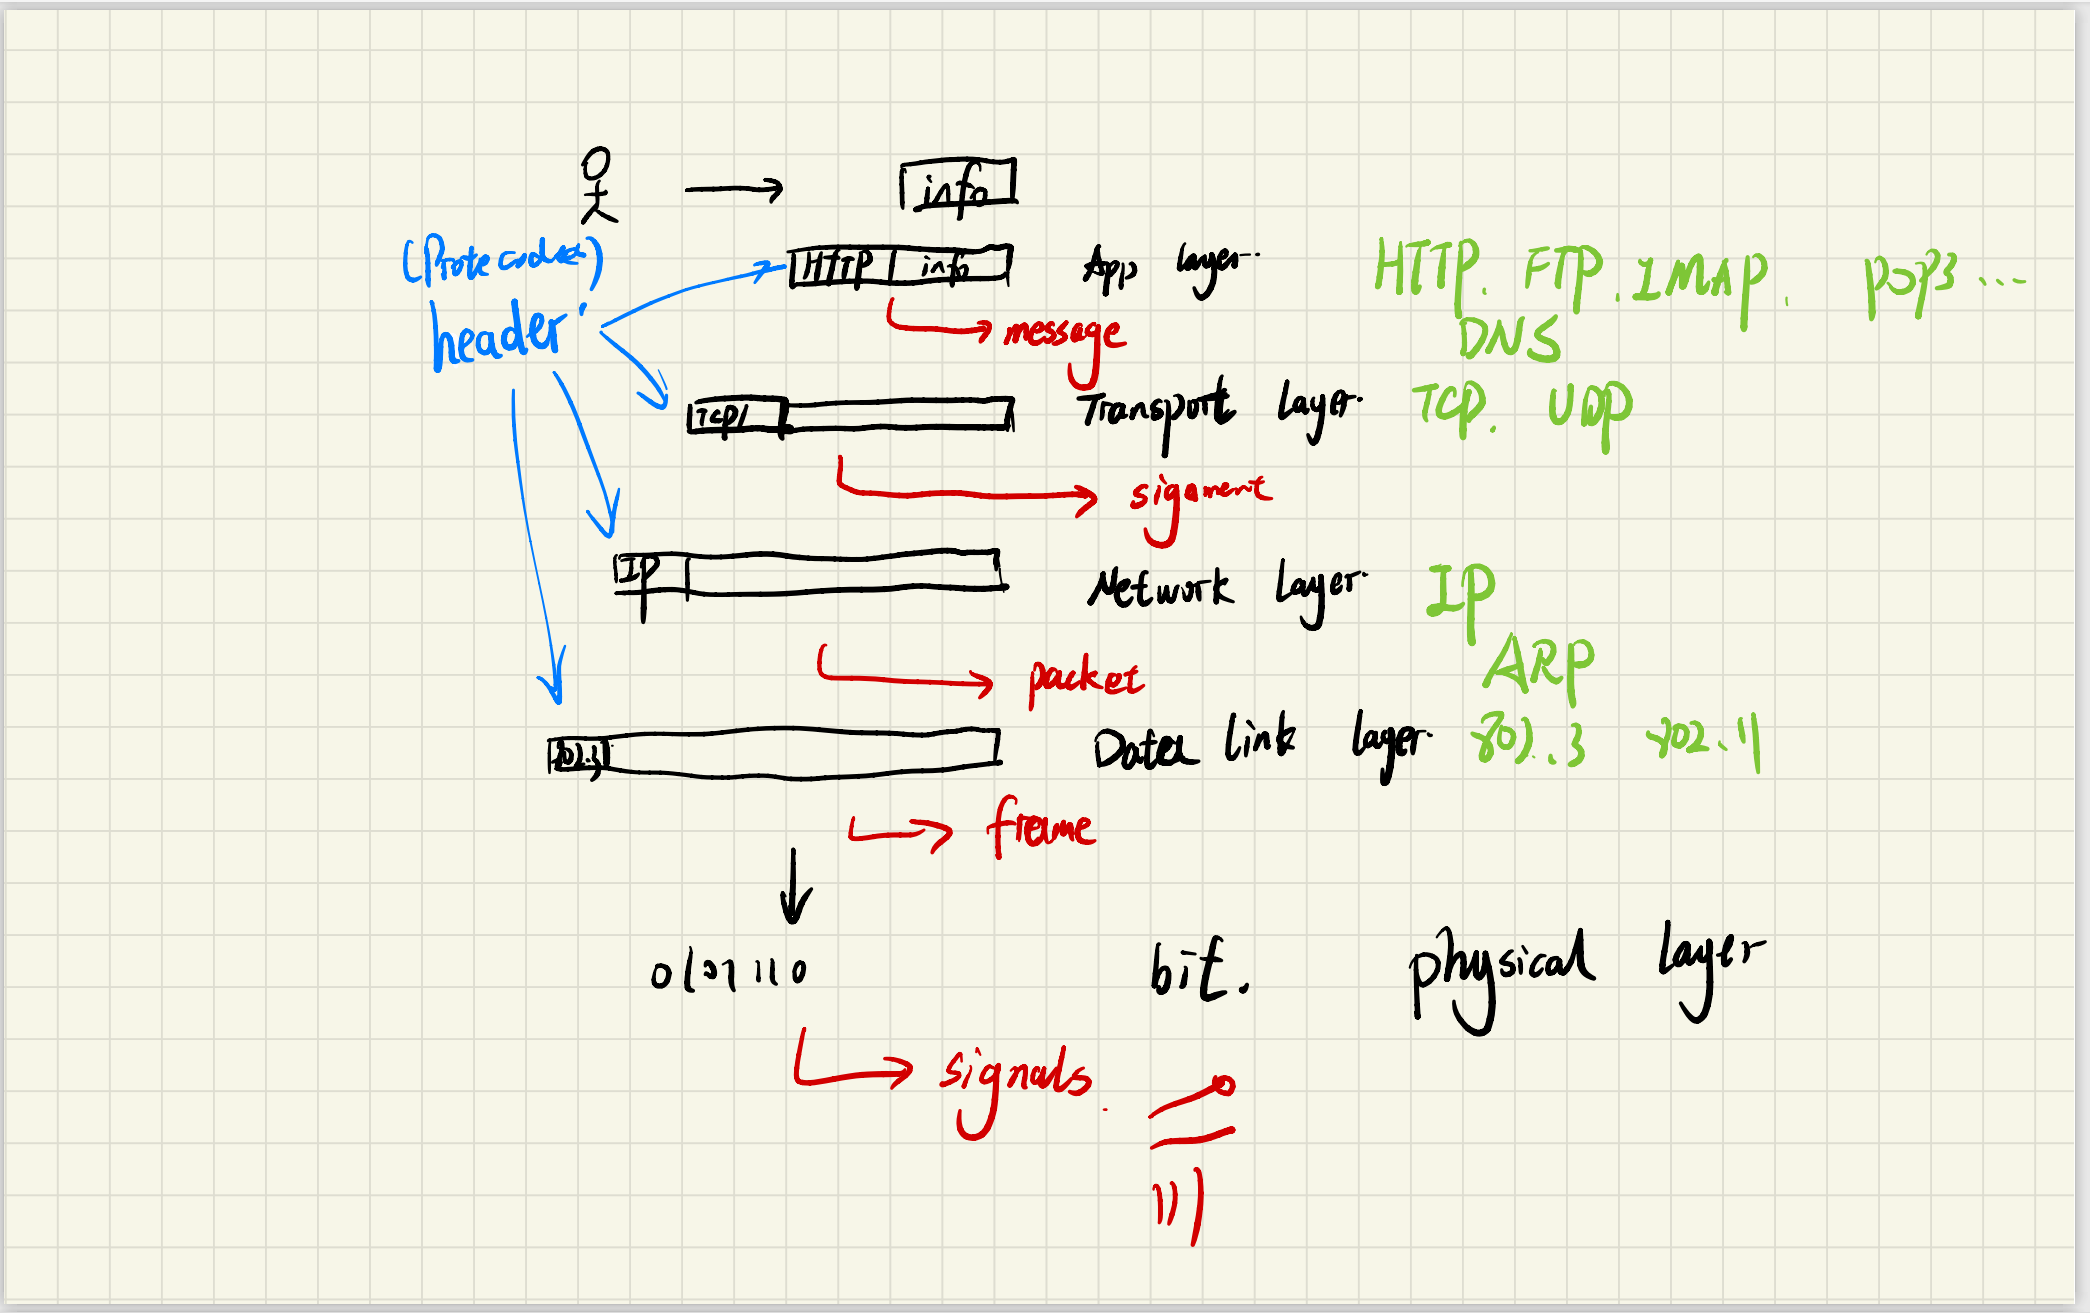 info
HTTP info App layer HTTP. FTP. IMAP. POP3 ...
header
message
DNS
TCP/ Transport Layer TCP. UDP
sigment
IP Network Layer IP
packet
ARP
802.3 Data link layer 802.3 802.11
frame
0101110 bit. physical layer
signals.